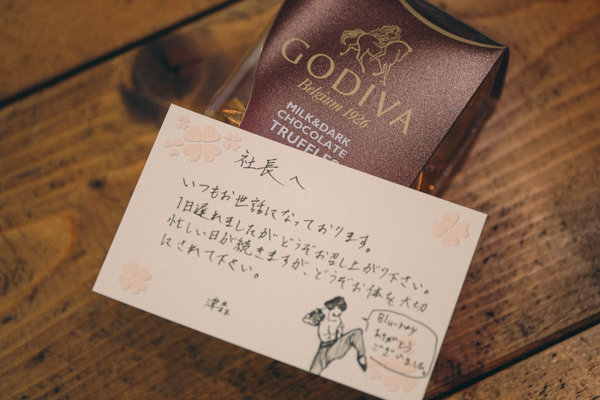 GODIVA
Belgium 1926
MILK&DARK
CHOCOLATE
TRUFFLES
社長へ
いつもお世話になっております。
1日遅れましたがどうぞお召し上がり下さい。
忙しい日が続きますが、どうぞお体を大切
にされて下さい。
津森
Blu-ray
ありがとう
ございました。